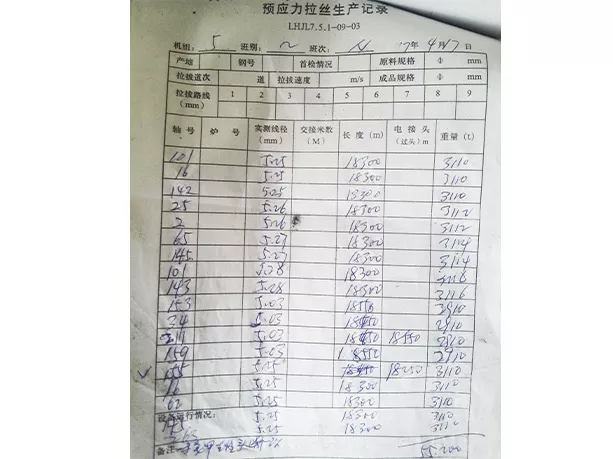 预应力拉丝生产记录
LHJL7.5.1-09-03
机组: 5 班别: 班次: 17年4月17日
产地 钢号 首检情况 原料规格 Φ mm
拉拔道次 道 拉拔速度 m/s 成品规格 Φ mm
拉拔路线(mm) 1 2 3 4 5 6 7 8 9
轴号 炉号 实测线径(mm) 交接米数(M) 长度(m) 电接头(过头)m 重量(t)
101 5.25 18300 3110
16 5.25 18300 3110
142 5.25 18300 3110
25 5.26 18300 3112
2 5.26 18300 3112
65 5.27 18300 3114
145 5.27 18300 3114
101 5.28 18300
143 5.28 18300 3116
153 5.03 18550 2910
34 5.03 18550 2910
5.03 18550 18550 2910
159 5.03 18550 2910
5.25 3110
5.25 18300 3110
62 5.25 18300 3110
设备运行情况: 5.25 18300 3110
5.25 18300 3110
备注: 55.200